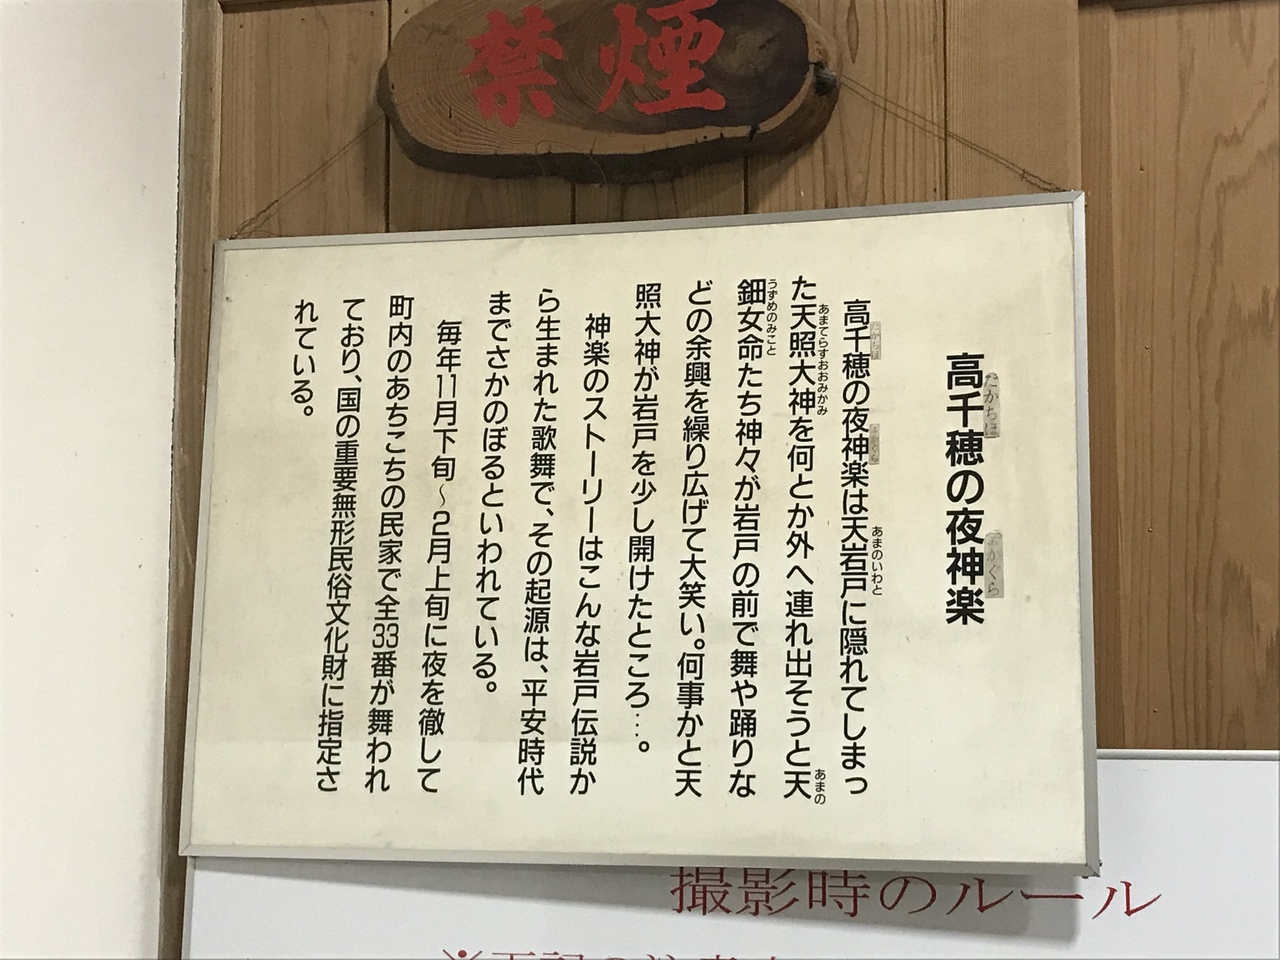 禁煙
高千穂の夜神楽
高千穂の夜神楽は天岩戸に隠れてしまっ
た天照大神を何とか外へ連れ出そうと天
鈿女命たち神々が岩戸の前で舞や踊りな
どの余興を繰り広げて大笑い。何事かと天
照大神が岩戸を少し開けたところ…。
神楽のストーリーはこんな岩戸伝説か
ら生まれた歌舞で、その起源は、平安時代
までさかのぼるといわれている。
毎年11月下旬～2月上旬に夜を徹して
町内のあちこちの民家で全33番が舞われ
ており、国の重要無形民俗文化財に指定さ
れている。
たかちほ
よかぐら
たかちほ
よかぐら
あまのいわと
あまてらすおおみかみ
あまの
うずめのみこと
撮影時のルール